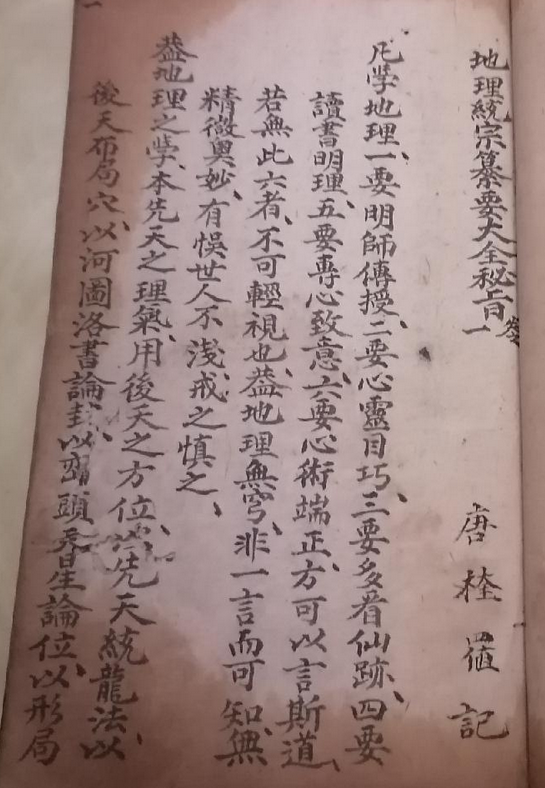 地理統宗纂要大全秘旨卷一
唐 桂 羅 記
凡學地理、一要明師傳授、二要心靈目巧、三要多看仙跡、四要
讀書明理、五要專心致意、六要心術端正、方可以言斯道、
若無此六者、不可輕視也、葢地理無穹、非一言而可知、無
精微奥妙、有悮世人不淺、戒之慎之、
葢地理之學、本先天之理氣、用後天之方位、先天統龍法、以
後天布局穴、以河圖洛書論卦、以巒頭星論位、以形局